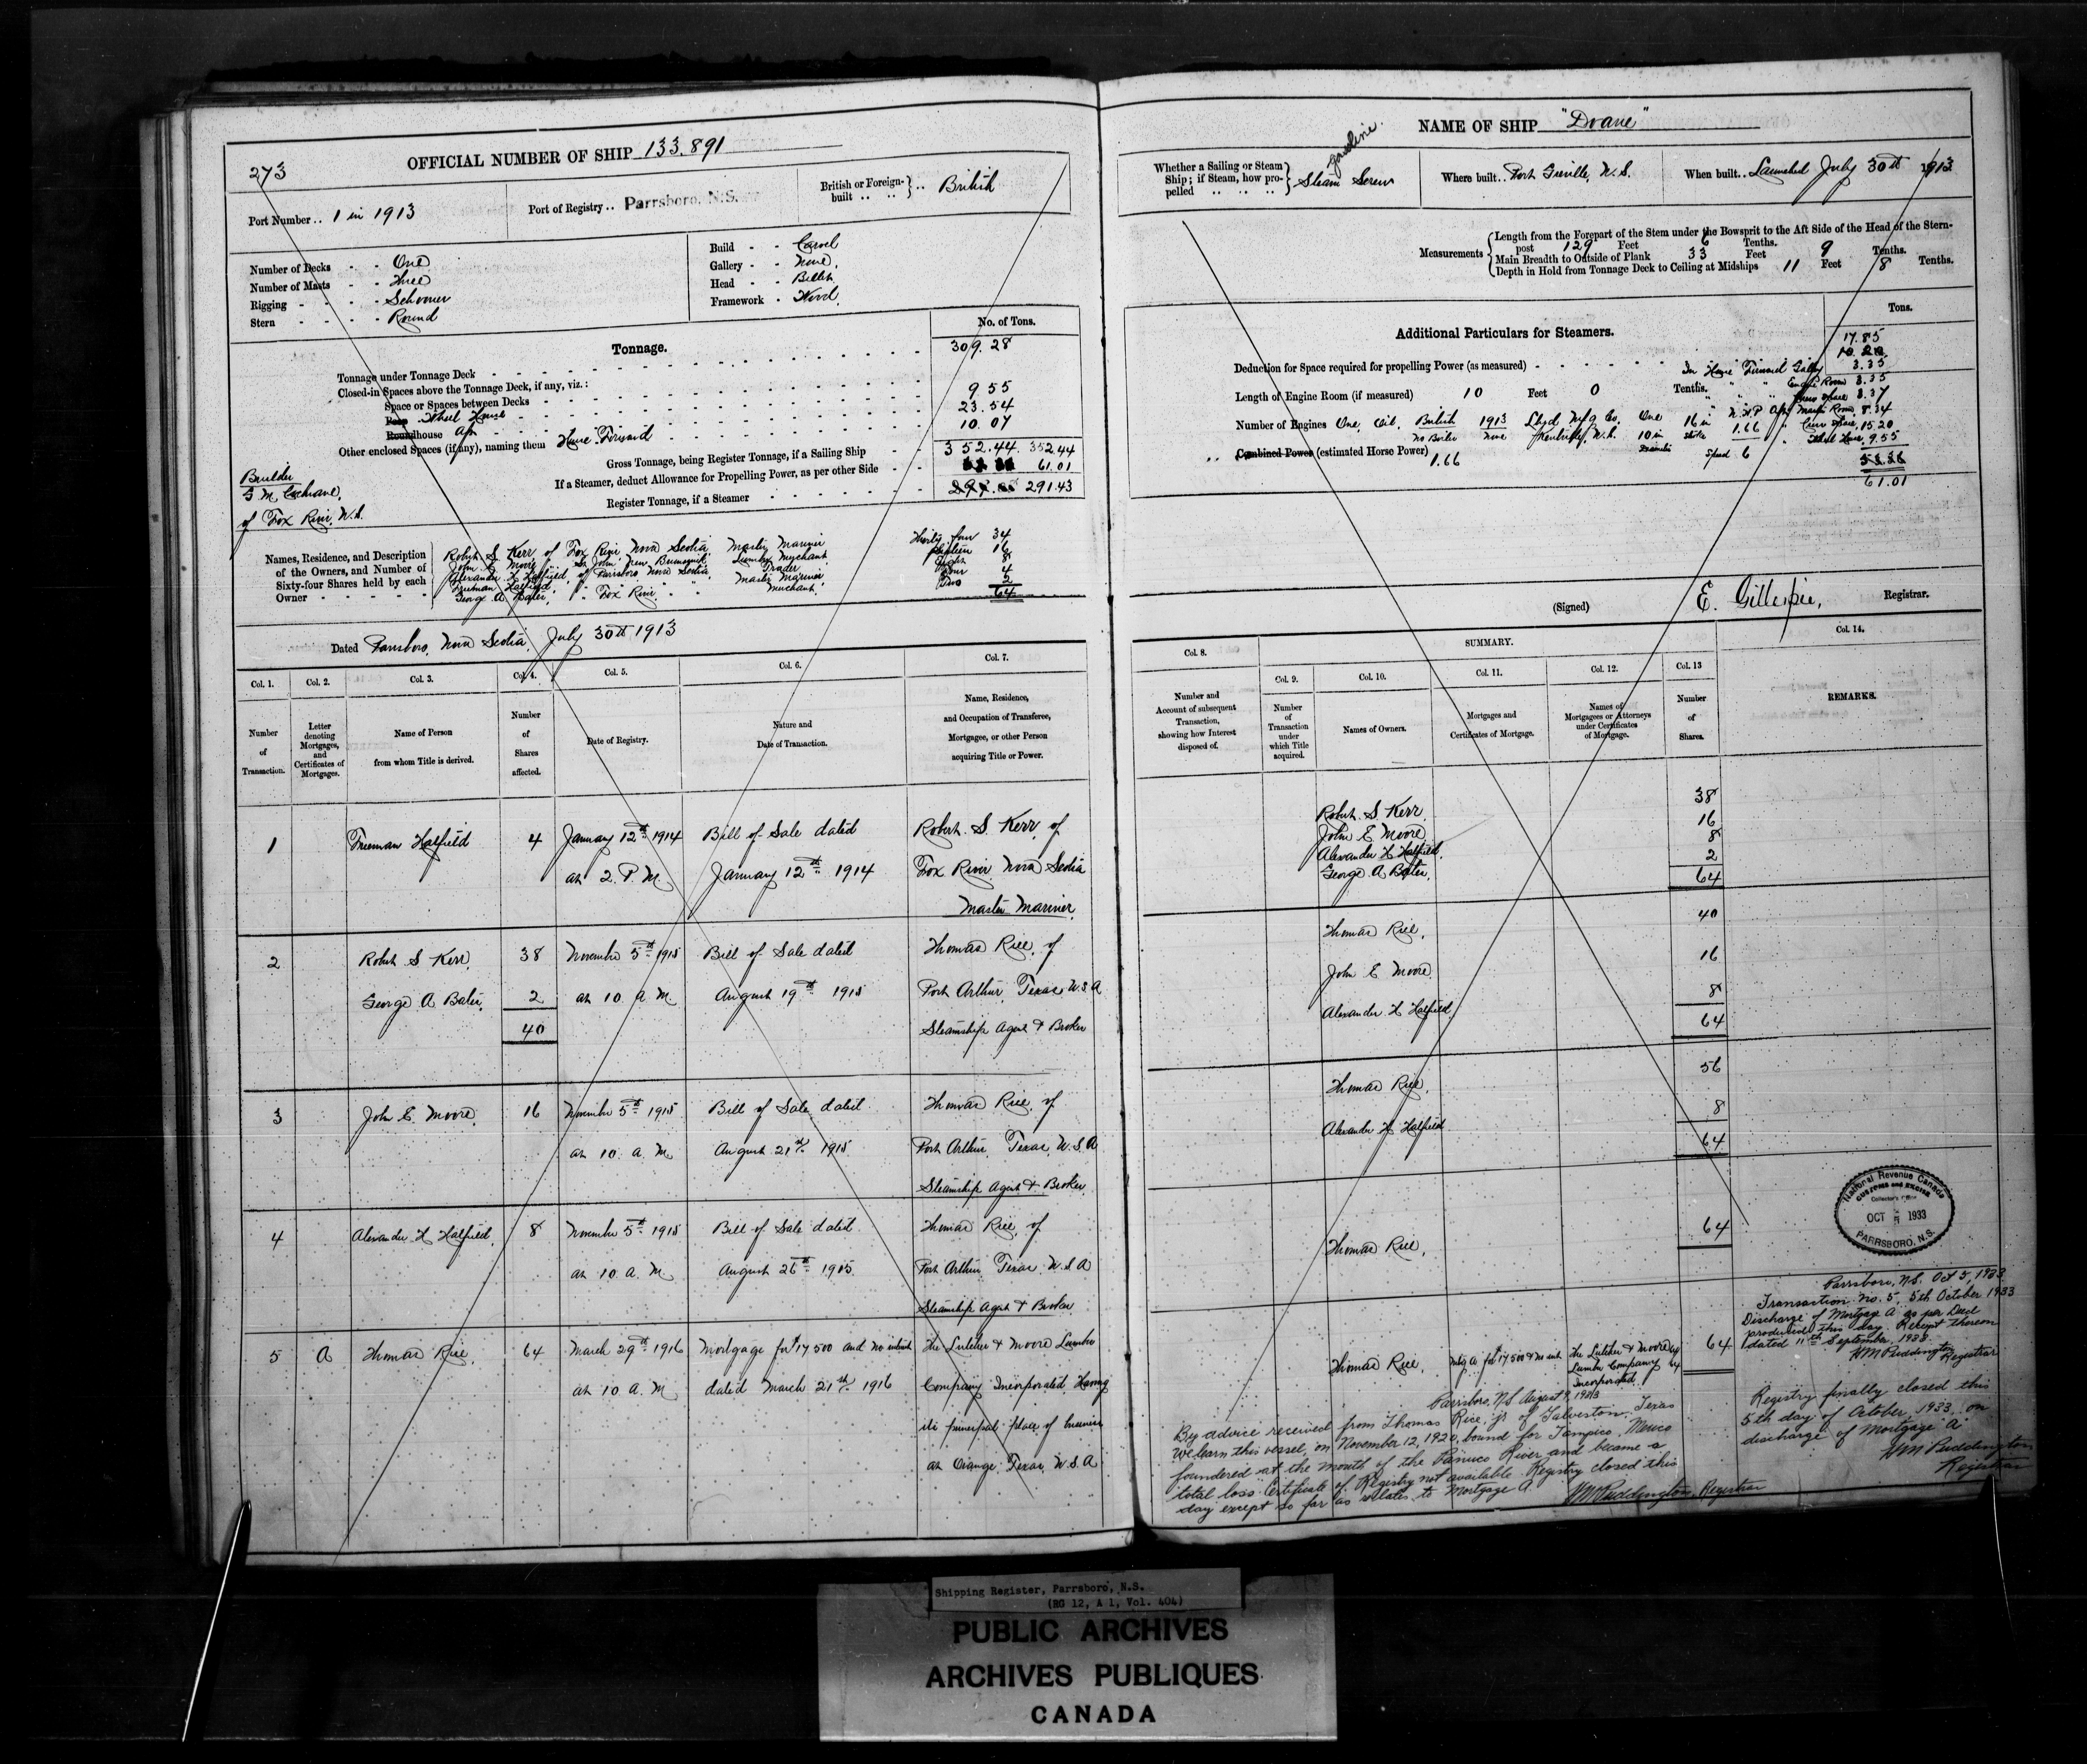 273
OFFICIAL NUMBER OF SHIP 133.891
Port Number .. 1 in 1913
Port of Registry .. Parrsboro, N.S.
British or Foreign-built .. British
Number of Decks - - One
Number of Masts - - Three
Rigging - - - - Schooner
Stern - - - - Round
Build - - Carvel
Gallery - - None,
Head - - Billet
Framework - Wood,
Tonnage.
No. of Tons.
Tonnage under Tonnage Deck 309.28
Closed-in Spaces above the Tonnage Deck, if any, viz.:
Space or Spaces between Decks
Poop Wheel House 9 55
Roundhouse Aft 23.54
Other enclosed Spaces (if any), naming them House Forward 10.07
Gross Tonnage, being Register Tonnage, if a Sailing Ship 352.44. 352.44
If a Steamer, deduct Allowance for Propelling Power, as per other Side 61.01
Register Tonnage, if a Steamer 291.43
Builder
G. M. Cochrane,
of Fox River, N.S.
Names, Residence, and Description of the Owners, and Number of Sixty-four Shares held by each Owner
Robert S. Kerr, of Fox River, Nova Scotia, Master Mariner Thirty four 34
John E. Moore, St. John, New Brunswick, Lumber Merchant, Sixteen 16
Alexander H. Hatfield, of Parrsboro Nova Scotia, Trader Eight 8
Freeman Hatfield, " " " Master Mariner, Four 4
George A. Bater, " Fox River, " " Merchant, Two 2
64
Dated Parrsboro, Nova Scotia, July 30th 1913
Col. 1.
Col. 2.
Col. 3.
Col. 4.
Col. 5.
Col. 6.
Col. 7.
Number of Transaction.
Letter denoting Mortgages, and Certificates of Mortgages.
Name of Person from whom Title is derived.
Number of Shares affected.
Date of Registry.
Nature and Date of Transaction.
Name, Residence, and Occupation of Transferee, Mortgagee, or other Person acquiring Title or Power.
1 Freeman Hatfield 4 January 12th 1914 Bill of Sale dated Robert S. Kerr, of
at 2 P.M. January 12th 1914 Fox River, Nova Scotia
Master Mariner,
2 Robert S Kerr, 38 November 5th 1915 Bill of Sale dated Thomas Rice, of
George A Bater, 2 at 10 A.M. August 19th 1915 Port Arthur, Texas U.S.A
40 Steamship Agent & Broker
3 John E Moore, 16 November 5th 1915 Bill of Sale dated Thomas Rice, of
at 10 A.M. August 21st 1915 Port Arthur, Texas, U.S.A
Steamship Agent & Broker,
4 Alexander H Hatfield, 8 November 5th 1915 Bill of Sale dated Thomas Rice, of
at 10 A.M. August 26th 1915 Port Arthur Texas, U.S.A
Steamship Agent & Broker
5 A Thomas Rice, 64 March 29th 1916 Mortgage for $17500 and No interest The Lutcher & Moore Lumber
at 10 A.M. dated March 21st 1916 Company Incorporated Having
its principal place of business
at Orange, Texas, U.S.A
NAME OF SHIP "Doane"
Whether a Sailing or Steam Ship; if Steam, how propelled .. Steam Screw
gasoline
Where built .. Port Greville, N.S.
When built .. Launched July 30th 1913
Measurements
Length from the Forepart of the Stem under the Bowsprit to the Aft Side of the Head of the Stern-
post 129 Feet 6 Tenths.
Main Breadth to Outside of Plank 33 Feet 9 Tenths.
Depth in Hold from Tonnage Deck to Ceiling at Midships 11 Feet 8 Tenths.
Additional Particulars for Steamers.
Tons.
Deduction for Space required for propelling Power (as measured) 17.85
Length of Engine Room (if measured) 10 Feet 0 Tenths.
Number of Engines One, Oil, British 1913 Lloyd Mfg Co. One 16 in N.H.P.
No Boiler None Kentville, N.S. 10 in 1.66
Combined Power (estimated Horse Power) 1.66 Speed 6
In House Forward Galley 3.35
Engine Room 3.35
8.37
Aft Master Room, 8.34
Crew Space, 15 20
Wheel House, 9.55
61.01
(Signed) E. Gillespie, Registrar.
Col. 8.
SUMMARY.
Col. 9.
Col. 10.
Col. 11.
Col. 12.
Col. 13
Col. 14.
Number and Account of subsequent Transaction, showing how Interest disposed of.
Number of Transaction under which Title acquired.
Names of Owners.
Mortgages and Certificates of Mortgage.
Names of Mortgagees or Attorneys under Certificates of Mortgage.
Number of Shares.
REMARKS.
Robert S. Kerr, 38
John E Moore 16
Alexander H Hatfield, 8
George A Bater, 2
64
Thomas Rice, 40
John E Moore, 16
Alexander H Hatfield, 8
64
Thomas Rice, 56
Alexander H Hatfield 8
64
Thomas Rice, 64
Thomas Rice, Mtg A for $17500 & No int The Lutcher & Moore 64
Lumber Company
Incorporated.
National Revenue Canada
CUSTOMS and EXCISE
Collector's Office
OCT 5 1933
PARRSBORO, N.S.
Parrsboro, N.S. Oct 5, 1933
Transaction No. 5, 5th October 1933
Discharge of Mortgage A as per Deed
produced this day. Receipt thereon
dated 11th September, 1933.
WM Puddington
Registrar
Registry finally closed this
5th day of October, 1933, on
discharge of Mortgage "A"
WM Puddington
Registrar
By advice received from Thomas Rice, jr of Galveston, Texas
We learn this vessel, on November 12, 1920, bound for Tampico, Mexico
foundered at the mouth of the Panuco River and became a
total loss. Certificate of Registry not available. Registry closed this
day except so far as relates to Mortgage A
WM Puddington, Registrar
Shipping Register, Parrsboro, N.S.
(RG 12, A 1, Vol. 404)
PUBLIC ARCHIVES
ARCHIVES PUBLIQUES
CANADA